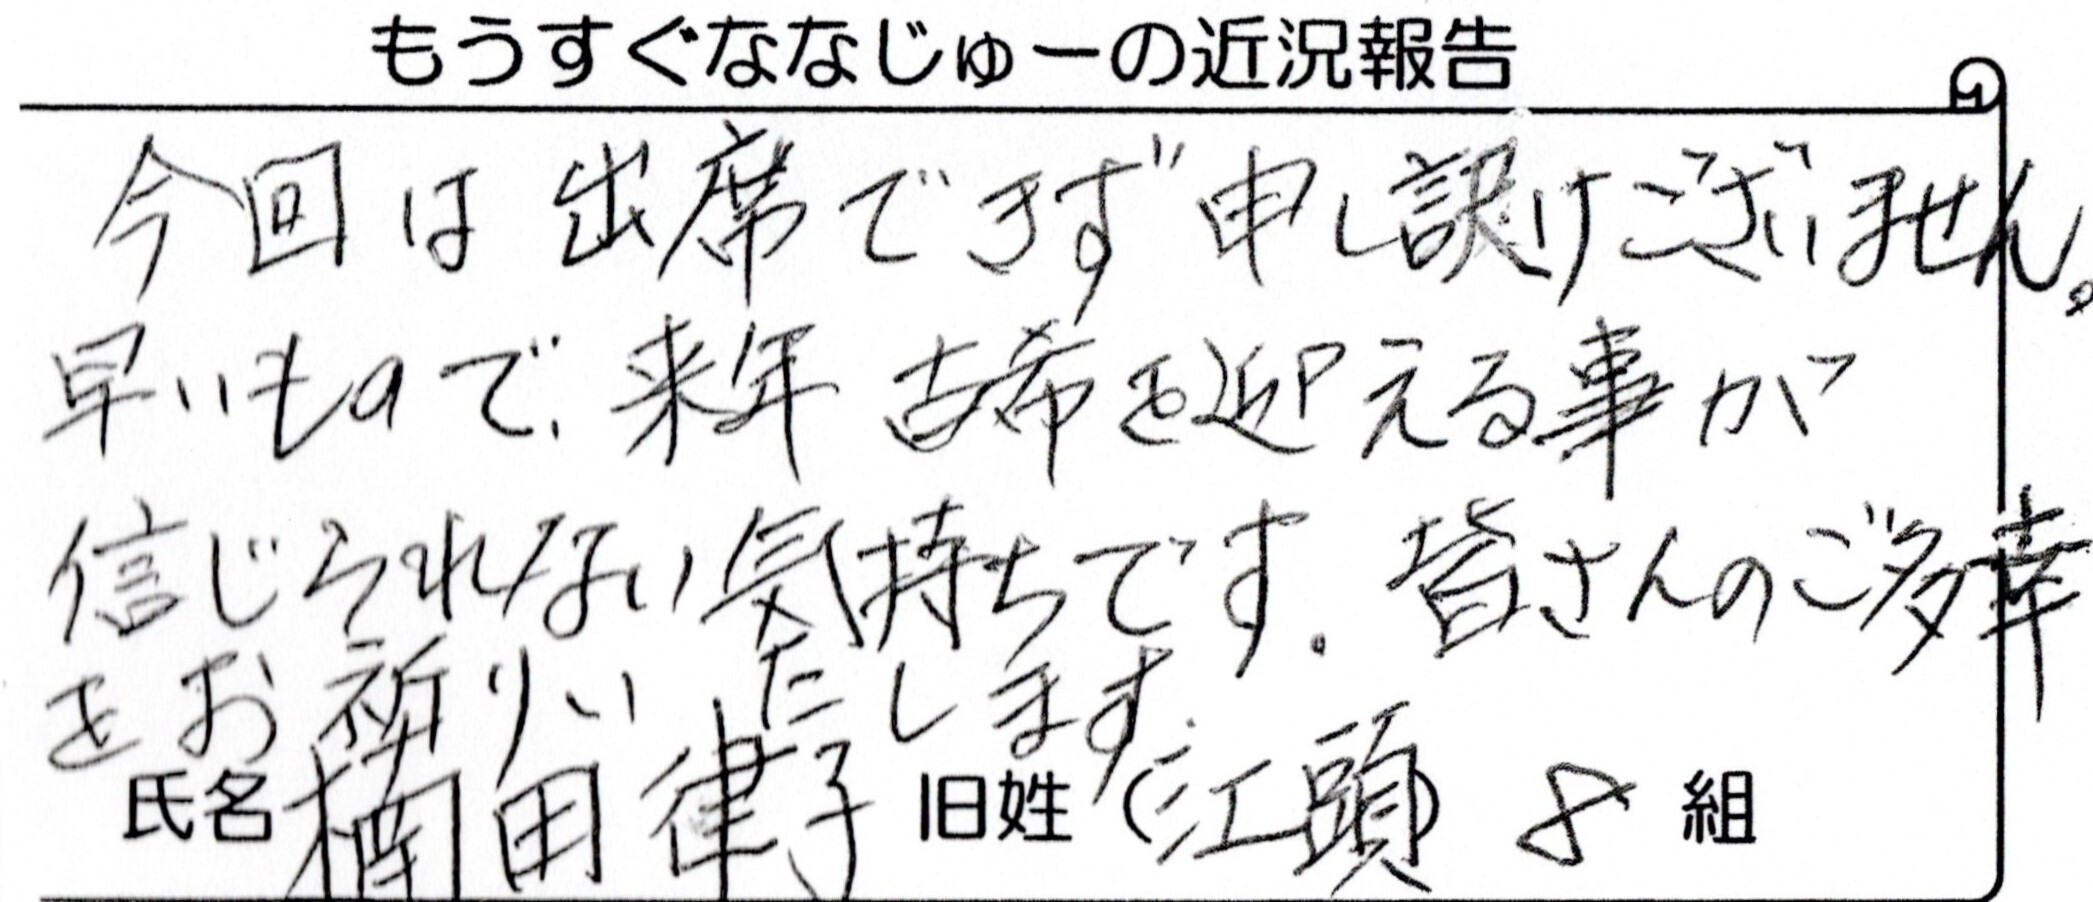 もうすぐななじゅーの近況報告
今回は出席できず申し訳けございません。
早いもので、来年古希を迎える事が
信じられない気持ちです。皆さんのご多幸
をお祈りいたします。
氏名 楠田律子 旧姓(江頭) 8組